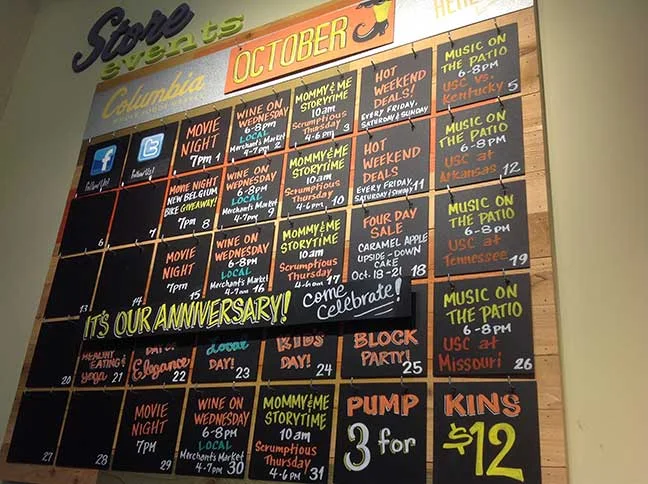 Store
events
OCTOBER
HERE
Columbia
Follow Us!
Follow Us!
MOVIE
NIGHT
7pm 1
WINE ON
WEDNESDAY
6-8pm
LOCAL
Merchant's Market
4-7pm 2
MOMMY & ME
STORYTIME
10am
Scrumptious
Thursday
4-6pm 3
HOT
WEEKEND
DEALS!
EVERY FRIDAY,
SATURDAY & SUNDAY
MUSIC ON
THE PATIO
6-8PM
USC vs.
Kentucky 5
6
7
MOVIE NIGHT
NEW BELGIUM
BIKE GIVEAWAY!
7pm 8
WINE ON
WEDNESDAY
6-8PM
LOCAL
Merchant's Market
4-7pm 9
MOMMY & ME
STORYTIME
10am
Scrumptious
Thursday
4-6pm 10
HOT
WEEKEND
DEALS
EVERY FRIDAY,
SATURDAY & SUNDAY 11
MUSIC ON
THE PATIO
6-8PM
USC at
Arkansas 12
13
14
MOVIE
NIGHT
7pm 15
WINE ON
WEDNESDAY
6-8PM
LOCAL
Merchant's Market
4-7pm 16
MOMMY & ME
STORYTIME
10am
Scrumptious
Thursday
4-6pm 17
FOUR DAY
SALE
CARAMEL APPLE
UPSIDE-DOWN
CAKE
Oct. 18-21 18
MUSIC ON
THE PATIO
6-8PM
USC at
Tennessee 19
IT'S OUR ANNIVERSARY! come celebrate!
20
HEALTHY
EATING &
yoga 21
DAY OF
Elegance 22
Local
DAY! 23
KID'S
DAY! 24
BLOCK
PARTY! 25
MUSIC ON
THE PATIO
6-8PM
USC at
Missouri 26
27
28
MOVIE
NIGHT
7PM
WINE ON
WEDNESDAY
6-8PM
LOCAL
Merchant's Market
4-7pm 30
MOMMY & ME
STORYTIME
10am
Scrumptious
Thursday
4-6pm 31
PUMP KINS
3 for $12